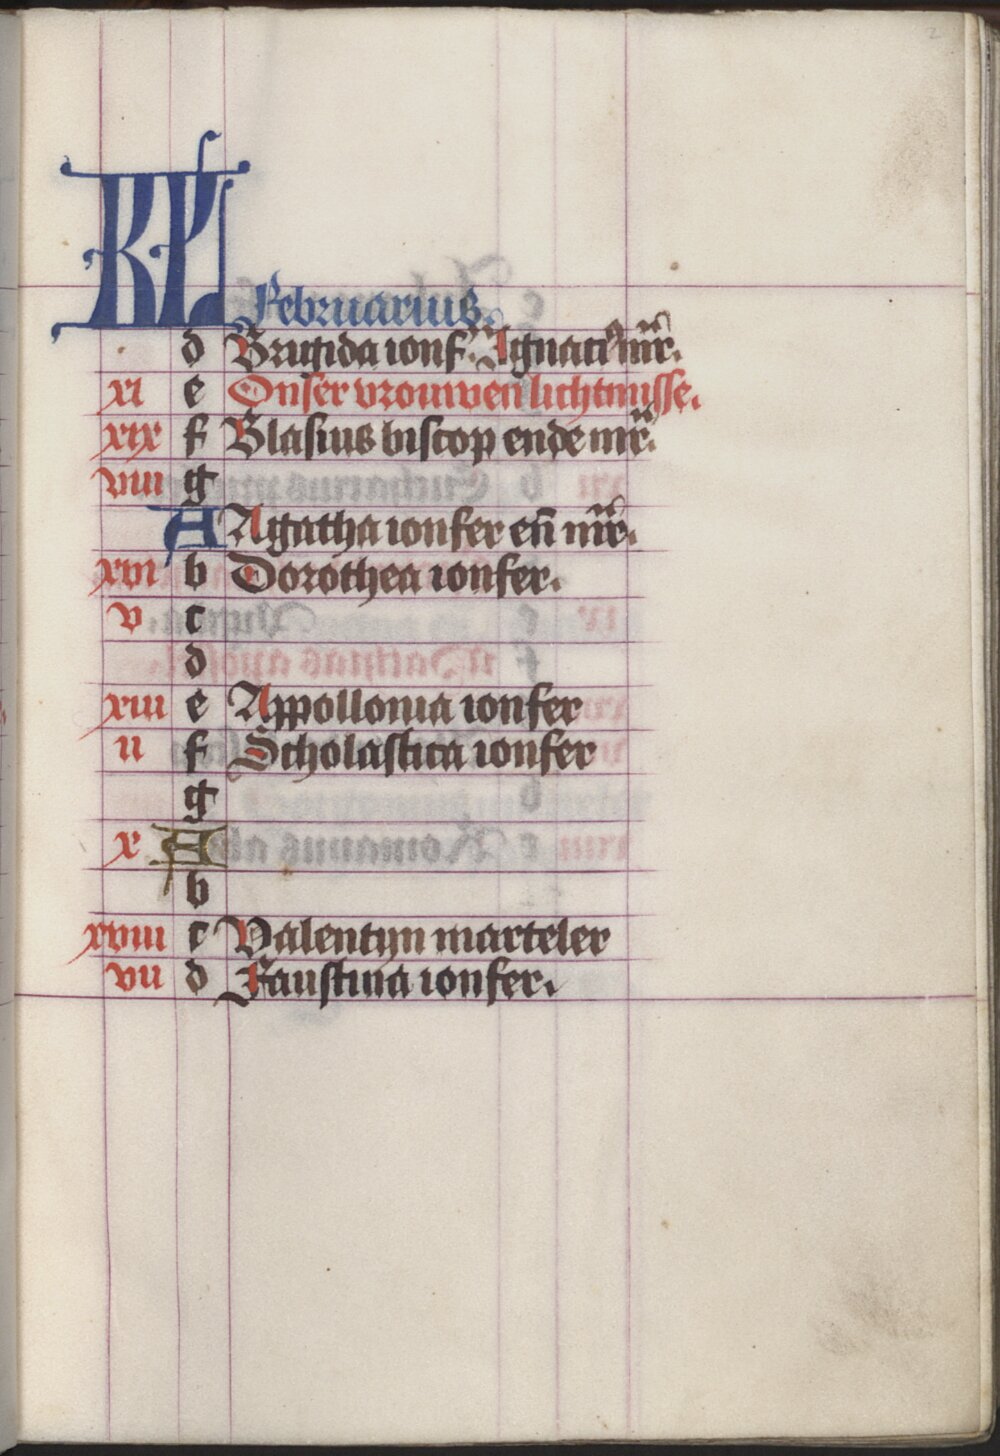 2
KL Februarius.
d Brigida ionf. Ignaci mr̄.
xi e Onser vrouwen lichtmisse.
xix f Blasius biscop ende mr̄.
viii g
A Agatha ionfer en̄ mr̄.
xvi b Dorothea ionfer.
v c
d
xiii e Appollonia ionfer
ii f Scholastica ionfer
g
x A
b
xviii c Valentijn marteler
vii d Faustina ionfer.